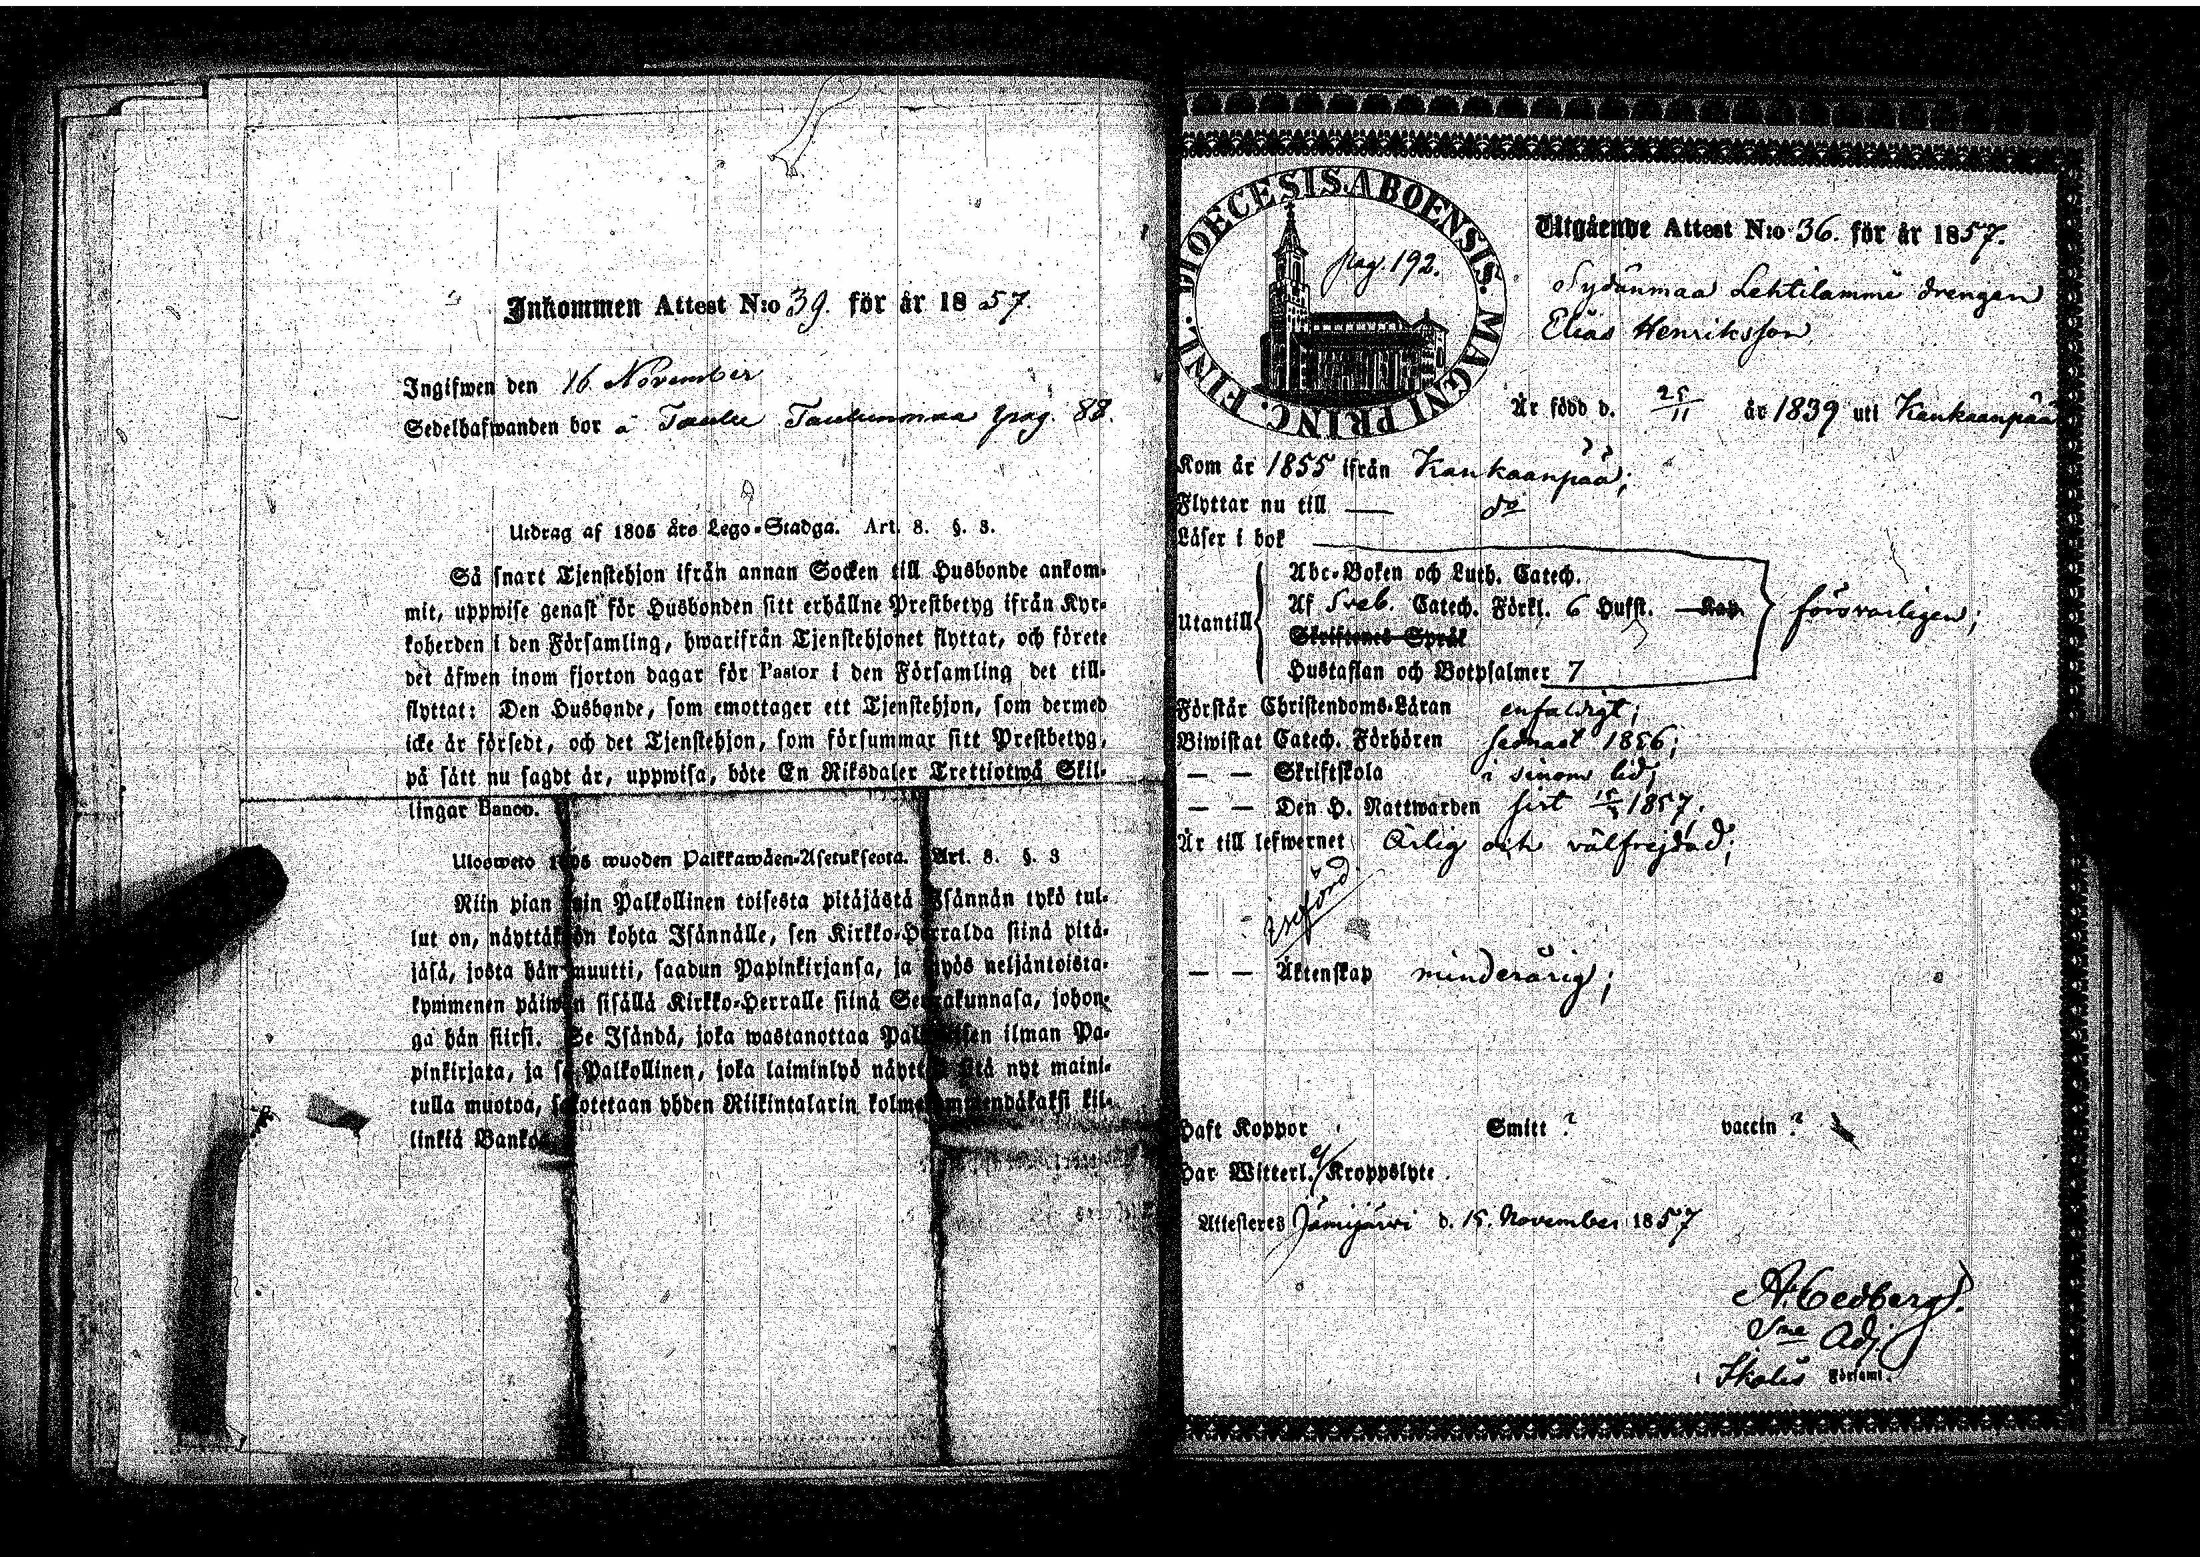 Inkommen Attest N:o 39. för år 1857.
Ingifwen den 16 November
Sedelhafwanden bor å Taulu Taulunmaa pag. 88.
Utdrag af 1805 års Lego-Stadga. Art. 8. §. 3.
Så snart Tjenstehjon ifrån annan Socken till Husbonde ankom-
mit, uppwise genast för Husbonden sitt erhållne Prestbetyg ifrån Kyr-
koherden i den Församling, hwarifrån Tjenstehjonet flyttat, och förete
det äfwen inom fjorton dagar för Pastor i den Församling det till-
flyttat: Den Husbonde, som emottager ett Tjenstehjon, som dermed
icke är försedt, och det Tjenstehjon, som försummar sitt Prestbetyg,
på sätt nu sagdt är, uppwisa, böte En Riksdaler Trettiotwå Skil-
lingar Banco.
Ulosweto 1805 wuoden Palkkawäen-Asetuksesta. Art. 8. §. 3
Niin pian kuin Palkollinen toisesta pitäjästä Isännän tykö tul-
lut on, näyttäkön kohta Isännälle, sen Kirkko-Herralda siinä pitä-
jäsä, josta hän muutti, saadun Papinkirjansa, ja myös neljäntoista-
kymmenen päiwän sisällä Kirkko-Herralle siinä Seurakunnasa, johon-
ga hän siirsi. Se Isändä, joka wastanottaa Palkollisen ilman Pa-
pinkirjata, ja se Palkollinen, joka laiminlyö näyttää sitä nyt maini-
tulla muotoa, sakotetaan yhden Riikintalarin kolmekymmendäkaksi kil-
linkiä Bankoa.
DIOECESIS ABOENSIS. MAGNI PRINC. FINL.
pag. 192.
Utgående Attest N:o 36. för år 1857.
Sydänmaa Lehtilammi drengen
Elias Henriksson,
Är född d. 25/11 år 1839 uti Kankaanpää
Kom år 1855 ifrån Kankaanpää;
Flyttar nu till — do
Läser i bok
Utantill
Abc-Boken och Luth. Catech.
Af Sveb. Catech. Förkl. 6 Hufst. Kap
Skriftenes Språk
Hustaflan och Botpsalmer 7
försvarligen;
Förstår Christendoms-Läran enfaldigt;
Biwistat Catech. Förhören sednast 1856;
— — Skriftskola i sinom tid;
— — Den H. Nattwarden sist 1857.
Är till lefwernet Ärlig och välfrejdad;
införd
— — Äktenskap minderårig;
Haft Koppor Smitt ? vaccin ?
Har Witterl. ej Kroppslyte.
Attesteres Jämijärvi d. 15. November 1857
A. Cedberg.
Adj.
i Ikalis Församl.